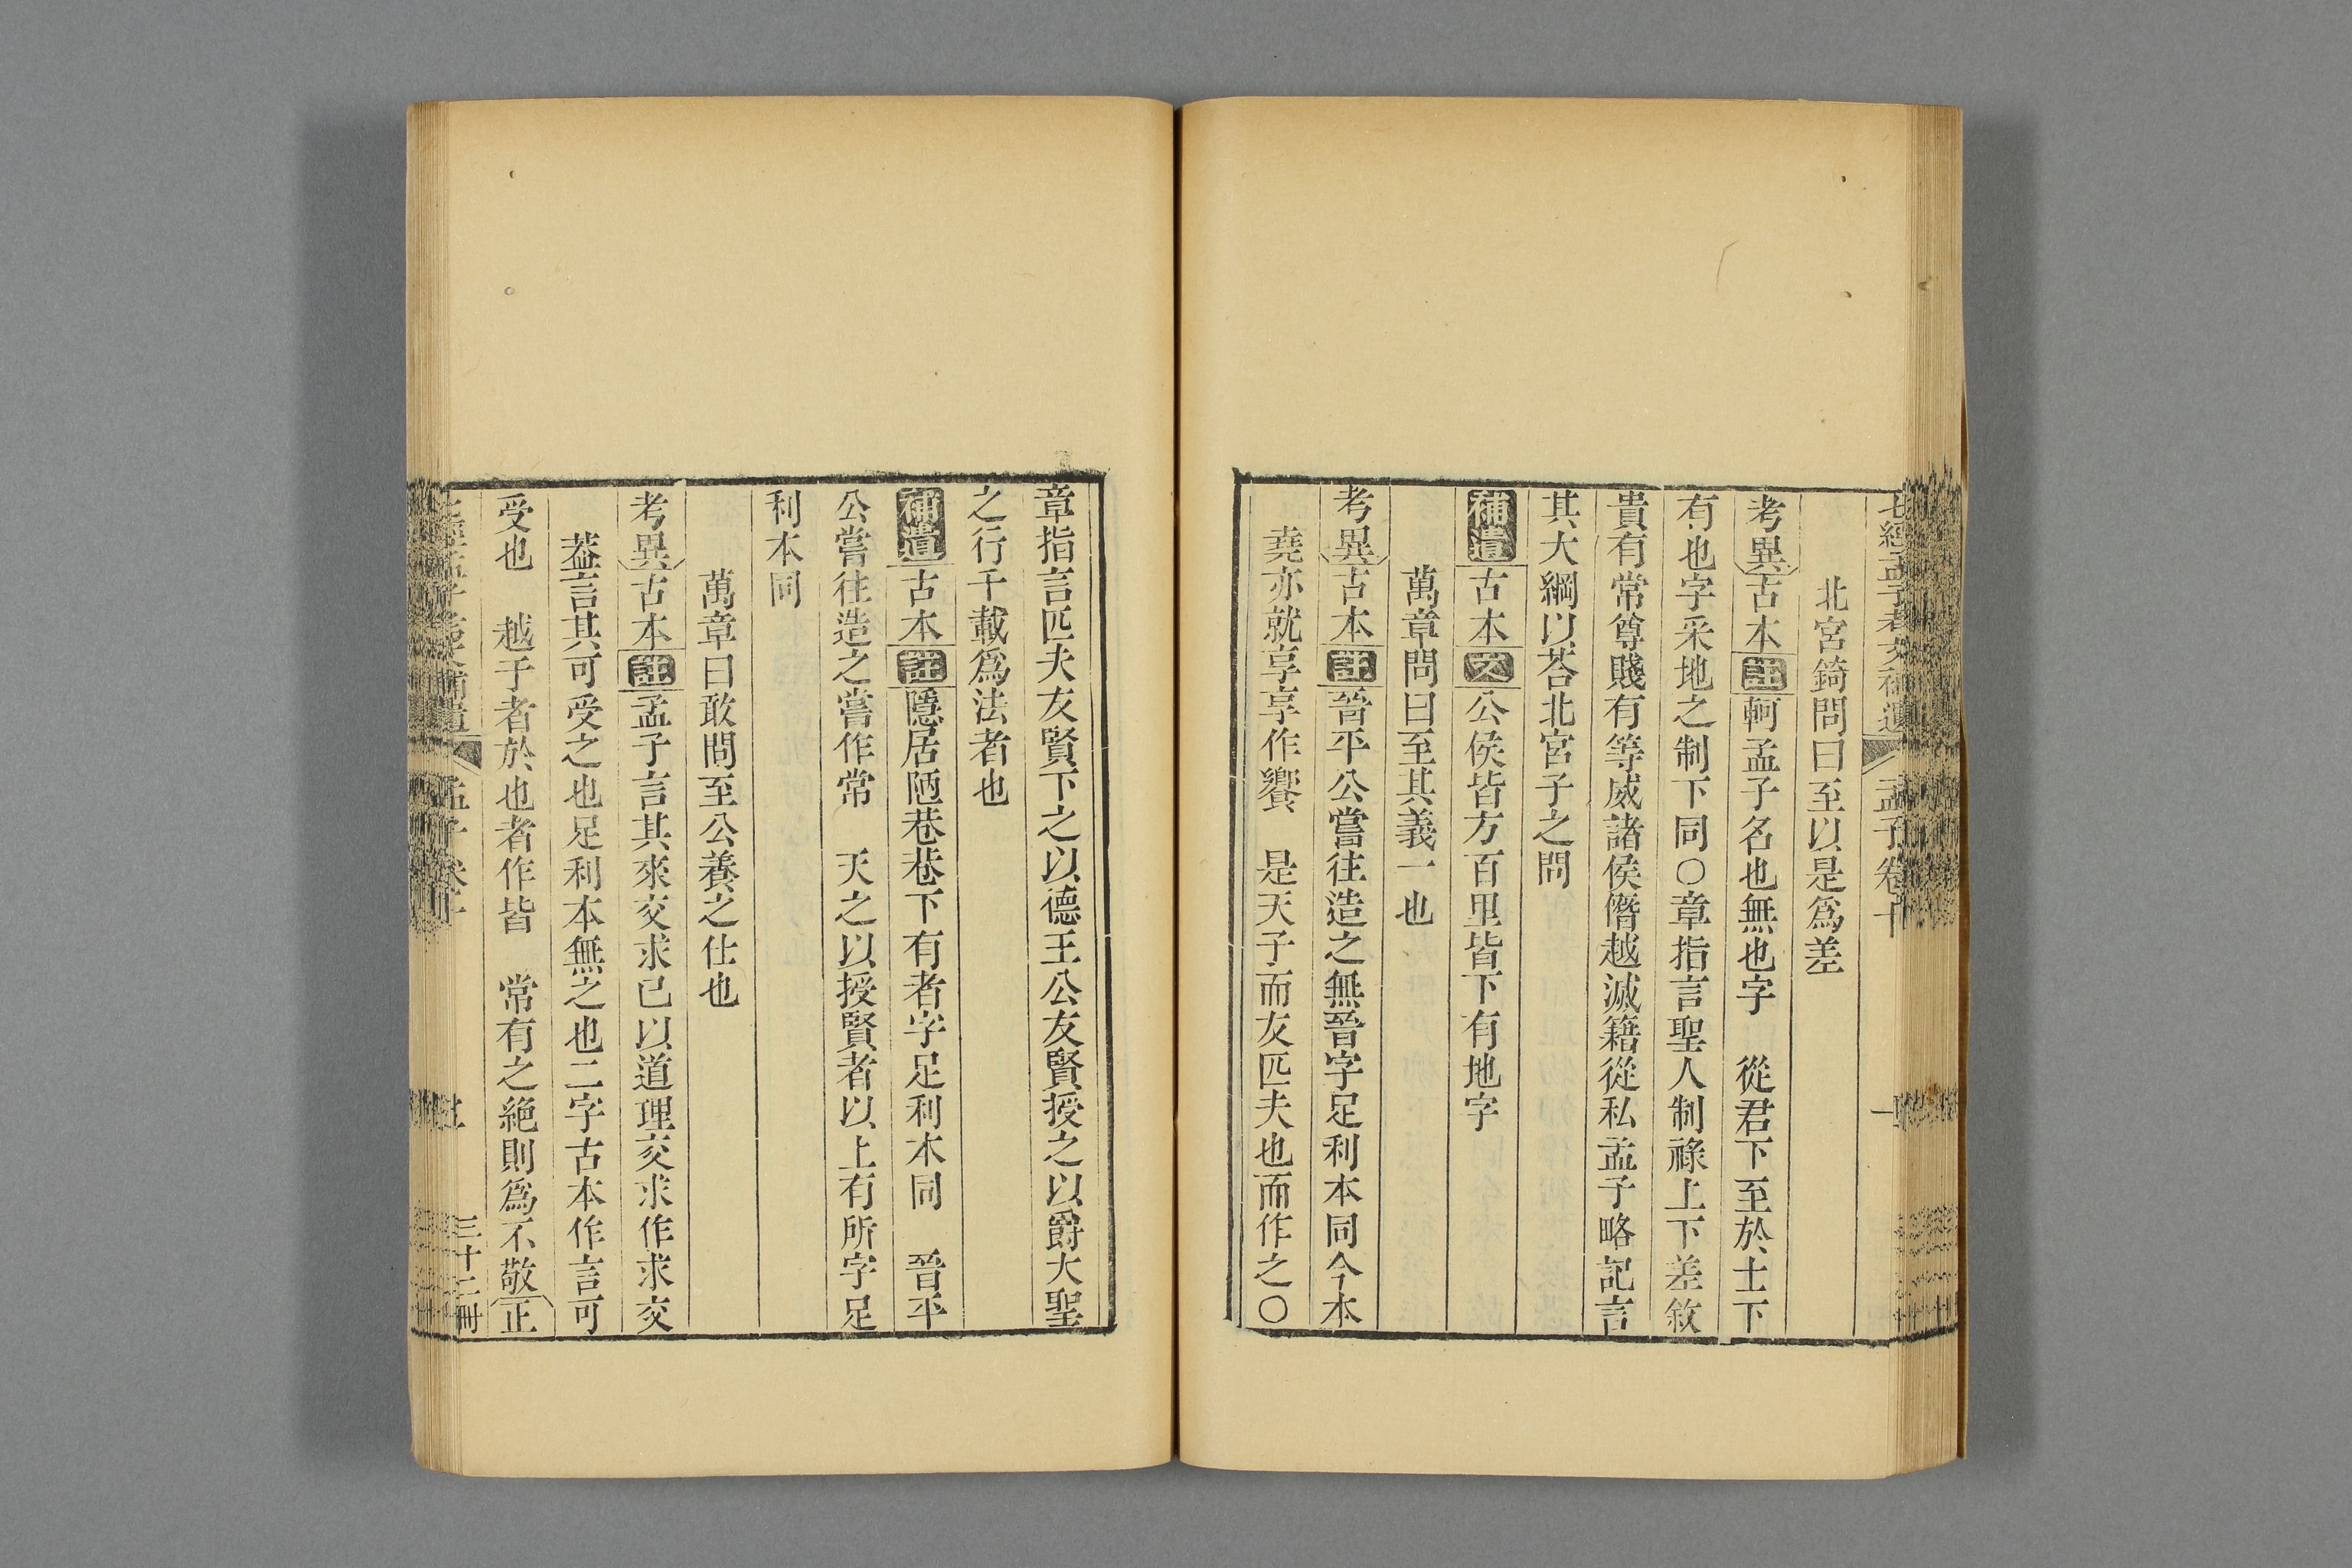 七經孟子考文補遺 孟子卷十
北宮錡問曰至以是爲差
考異古本註軻孟子名也無也字 從君下至於士下
有也字采地之制下同○章指言聖人制祿上下差敘
貴有常尊賤有等威諸侯僭越滅籍從私孟子略記言
其大綱以荅北宮子之問
補遺古本文公侯皆方百里皆下有地字
萬章問曰至其義一也
考異古本註晉平公嘗往造之無晉字足利本同今本
堯亦就享享作饗 是天子而友匹夫也而作之○
章指言匹夫友賢下之以德王公友賢授之以爵大聖
之行千載爲法者也
補遺古本註隱居陋巷巷下有者字足利本同 晉平
公嘗往造之嘗作常 天之以授賢者以上有所字足
利本同
萬章曰敢問至公養之仕也
考異古本註孟子言其來交求己以道理交求作求交
葢言其可受之也足利本無之也二字古本作言可
受也 越于者於也者作皆 常有之絕則爲不敬正
孟子卷十 三十二冊